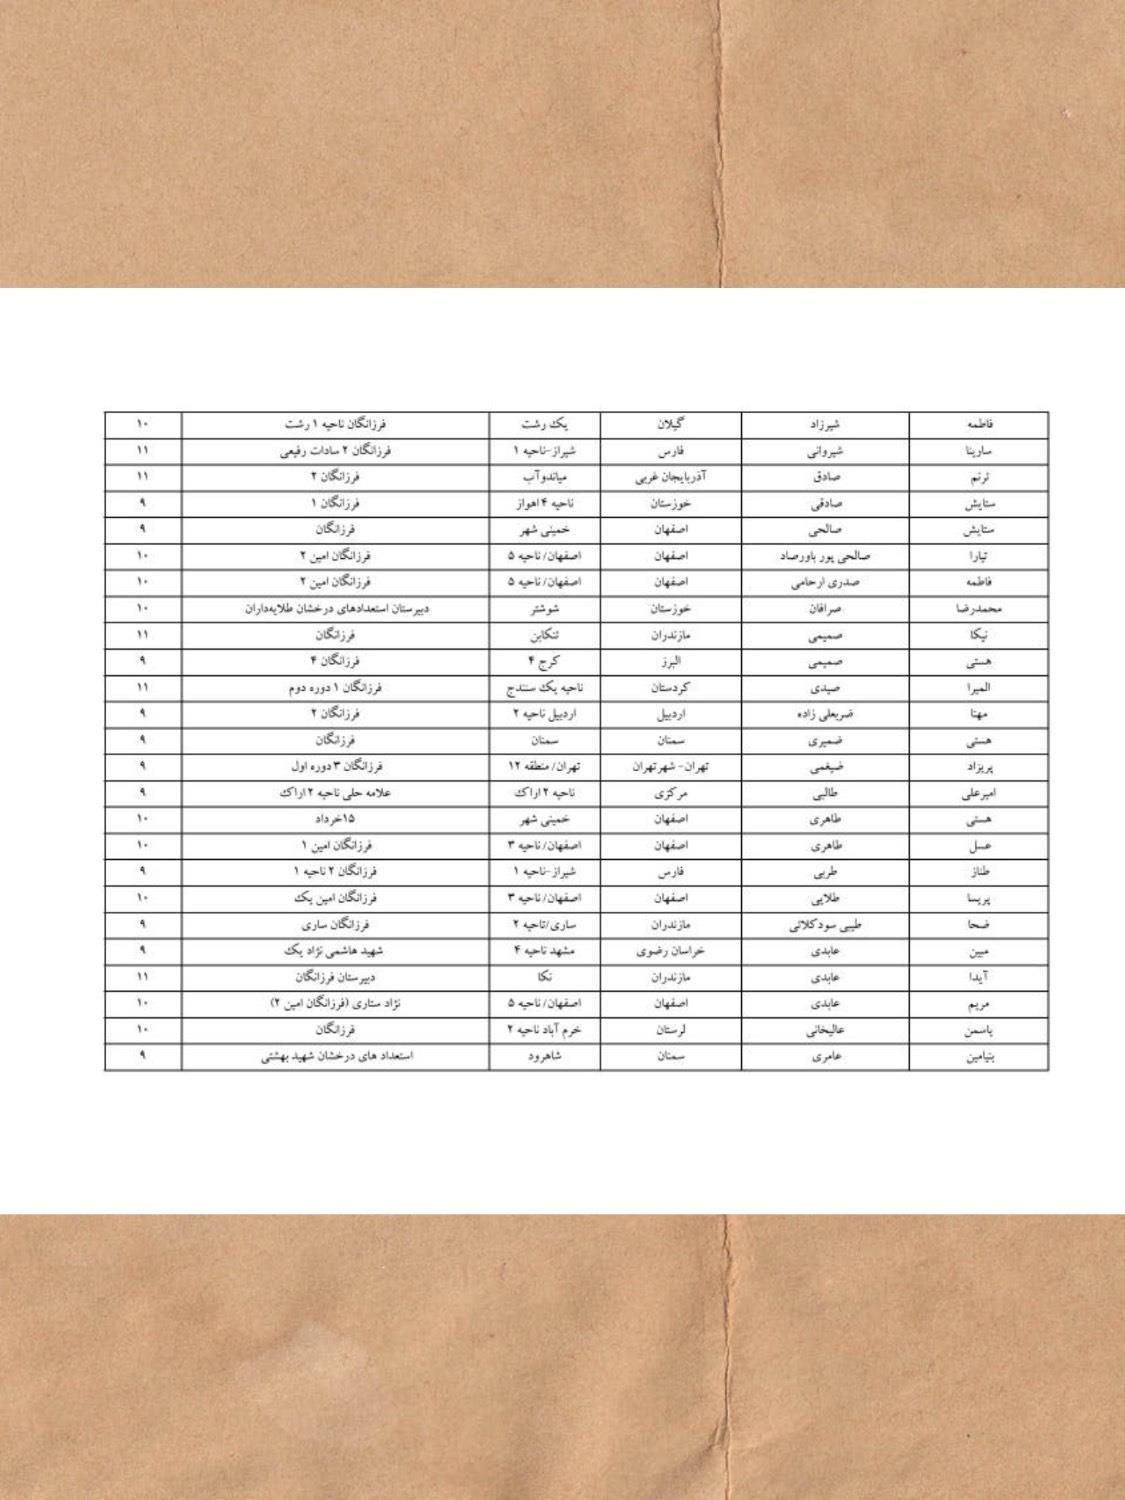 فاطمه شیرزاد گیلان یک رشت فرزانگان ناحیه ۱ رشت ۱۰
سارینا شیروانی فارس شیراز-ناحیه ۱ فرزانگان ۲ سادات رفیعی ۱۱
ترنم صادق آذربایجان غربی میاندوآب فرزانگان ۲ ۱۱
ستایش صادقی خوزستان ناحیه ۴ اهواز فرزانگان ۱ ۹
ستایش صالحی اصفهان خمینی شهر فرزانگان ۹
تیارا صالحی پور باورصاد اصفهان اصفهان/ ناحیه ۵ فرزانگان امین ۲ ۱۰
فاطمه صدری ارحامی اصفهان اصفهان/ ناحیه ۵ فرزانگان امین ۲ ۱۰
محمدرضا صرافان خوزستان شوشتر دبیرستان استعدادهای درخشان طلایه‌داران ۱۰
نیکا صمیمی مازندران تنکابن فرزانگان ۱۱
هستی صمیمی البرز کرج ۴ فرزانگان ۴ ۹
المیرا صیدی کردستان ناحیه یک سنندج فرزانگان ۱ دوره دوم ۱۱
مهنا ضربعلی زاده اردبیل اردبیل ناحیه ۲ فرزانگان ۲ ۹
هستی ضمیری سمنان سمنان فرزانگان ۹
پریزاد ضیغمی تهران- شهرتهران تهران/ منطقه ۱۲ فرزانگان ۳ دوره اول ۹
امیرعلی طالبی مرکزی ناحیه ۲ اراک علامه حلی ناحیه ۲ اراک ۹
هستی طاهری اصفهان خمینی شهر ۱۵خرداد ۱۰
عسل طاهری اصفهان اصفهان/ ناحیه ۳ فرزانگان امین ۱ ۱۰
طناز طربی فارس شیراز-ناحیه ۱ فرزانگان ۲ ناحیه ۱ ۹
پریسا طلایی اصفهان اصفهان/ ناحیه ۳ فرزانگان امین یک ۱۰
ضحا طیبی سودکلائی مازندران ساری/ناحیه ۲ فرزانگان ساری ۹
مبین عابدی خراسان رضوی مشهد ناحیه ۴ شهید هاشمی نژاد یک ۹
آیدا عابدی مازندران نکا دبیرستان فرزانگان ۱۱
مریم عابدی اصفهان اصفهان/ ناحیه ۵ نژاد ستاری (فرزانگان امین ۲) ۱۰
یاسمن عالیخانی لرستان خرم آباد ناحیه ۲ فرزانگان ۱۰
بنیامین عامری سمنان شاهرود استعداد های درخشان شهید بهشتی ۹